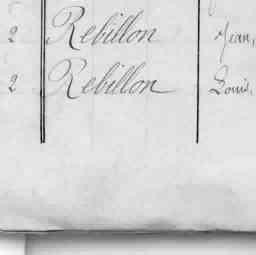 2 Rebillon Jean,
2 Rebillon Louis,